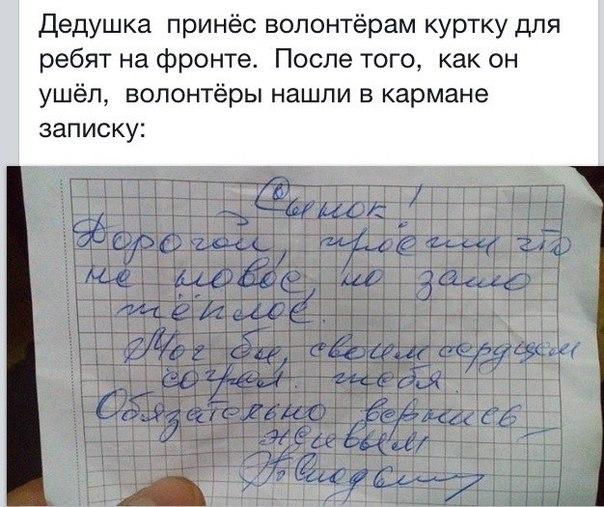 Дедушка принёс волонтёрам куртку для
ребят на фронте. После того, как он
ушёл, волонтёры нашли в кармане
записку:
Сынок!
Дорогой, прости что
не новое, но зато
тёплое.
Мог бы, своим сердцем
согрел тебя
Обязательно вернись
живым